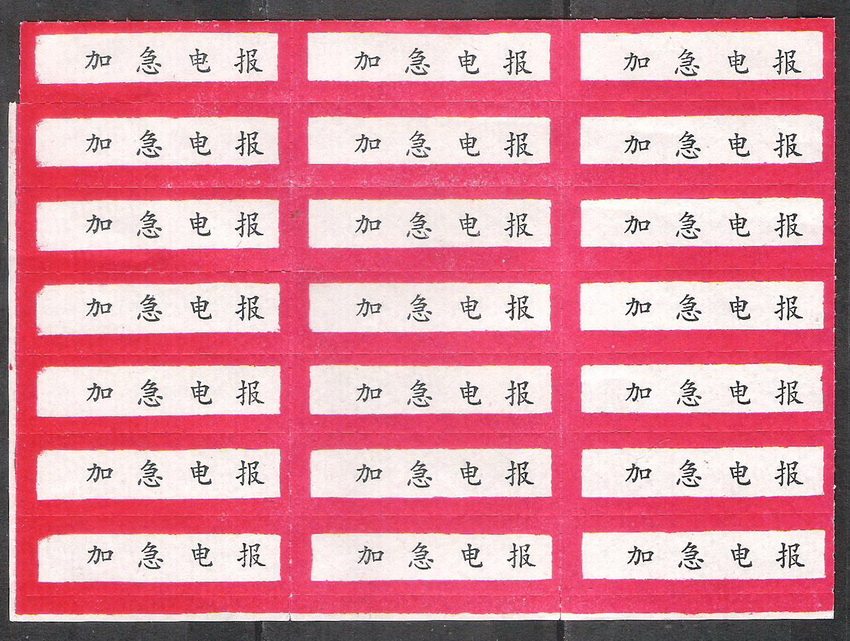 加急电报 加急电报 加急电报
加急电报 加急电报 加急电报
加急电报 加急电报 加急电报
加急电报 加急电报 加急电报
加急电报 加急电报 加急电报
加急电报 加急电报 加急电报
加急电报 加急电报 加急电报